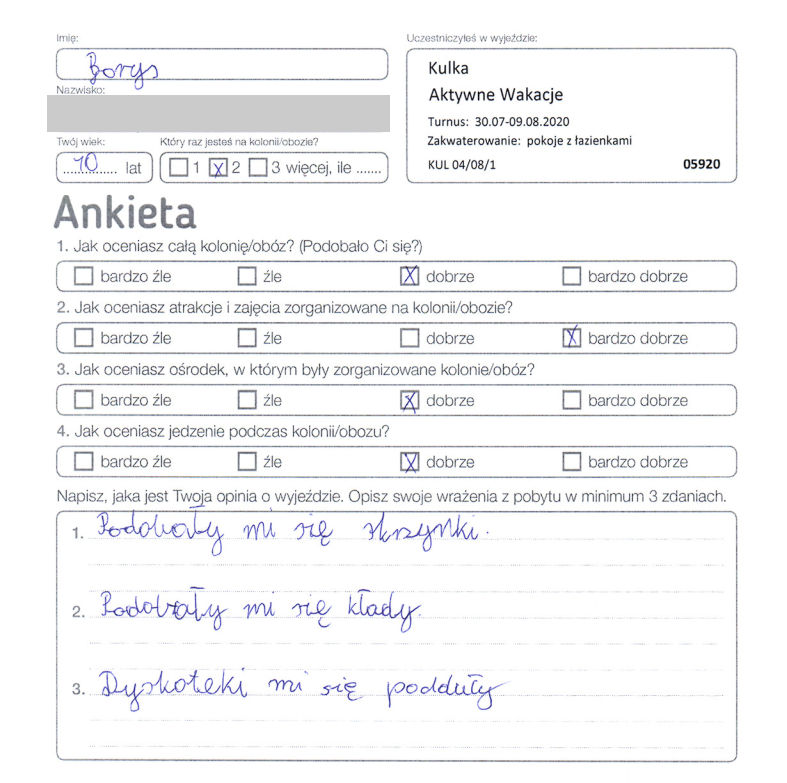 Imię:
Borys
Nazwisko:
Twój wiek:
10 lat
Który raz jesteś na kolonii/obozie?
1 x 2 3 więcej, ile .......
Uczestniczyłeś w wyjeździe:
Kulka
Aktywne Wakacje
Turnus: 30.07-09.08.2020
Zakwaterowanie: pokoje z łazienkami
KUL 04/08/1 05920
Ankieta
1. Jak oceniasz całą kolonię/obóz? (Podobało Ci się?)
bardzo źle źle x dobrze bardzo dobrze
2. Jak oceniasz atrakcje i zajęcia zorganizowane na kolonii/obozie?
bardzo źle źle dobrze x bardzo dobrze
3. Jak oceniasz ośrodek, w którym były zorganizowane kolonie/obóz?
bardzo źle źle x dobrze bardzo dobrze
4. Jak oceniasz jedzenie podczas kolonii/obozu?
bardzo źle źle x dobrze bardzo dobrze
Napisz, jaka jest Twoja opinia o wyjeździe. Opisz swoje wrażenia z pobytu w minimum 3 zdaniach.
1. Podobały mi się skrzynki.
2. Podobały mi się kłady.
3. Dyskoteki mi się